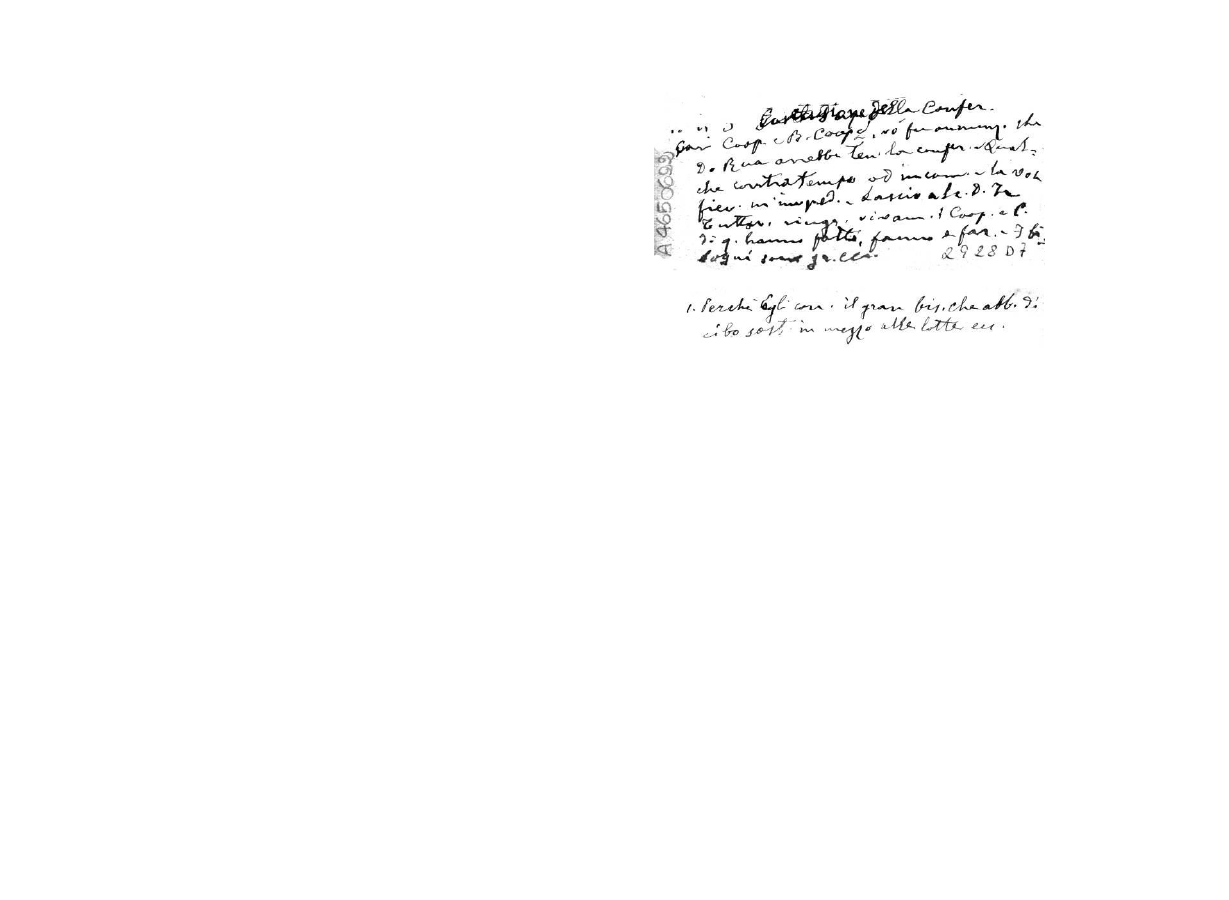 della Confer.
Cari Coop. e B. Coop., vi fu annunz. che
D. Rua avrebbe ten. la confer. - Qual-
che contratempo od incom. - la
fiev. in imped. - Lascio a Lc. D.
ringr. vivam. i Coop. e C.
di q. hanno fatto, fanno e far. - I bi-
sogni sono gr. ecc. 2928D7
A4650699
1. Perchè Egli con. il gran bis. che abb. di
cibo sost. in mezzo alle lotte ecc.